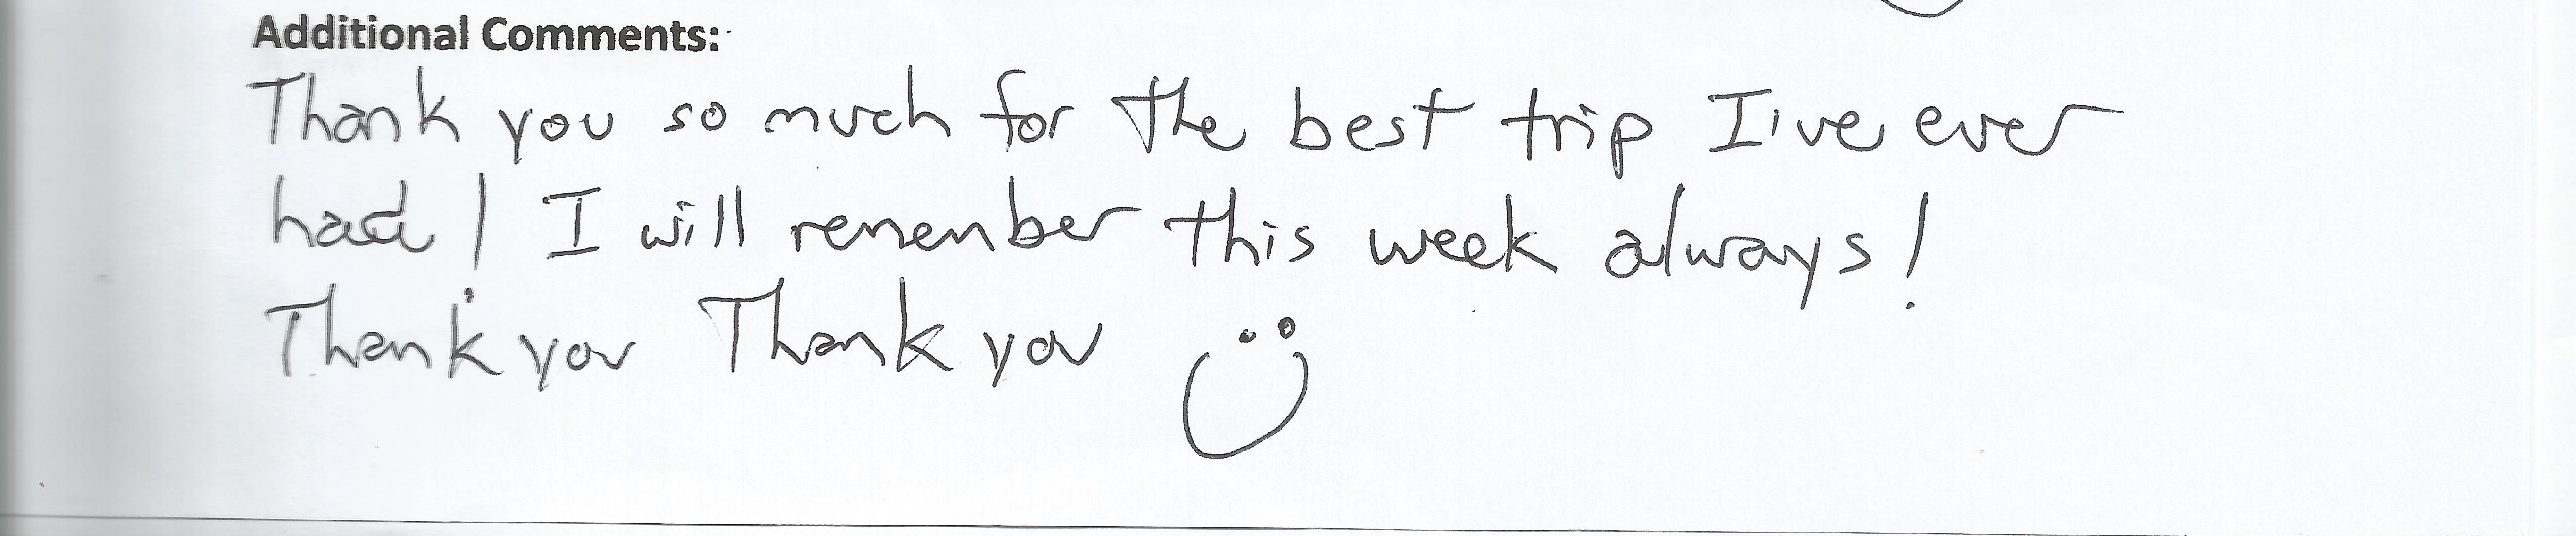 Additional Comments:
Thank you so much for the best trip I've ever
had! I will remember this week always!
Thank you Thank you